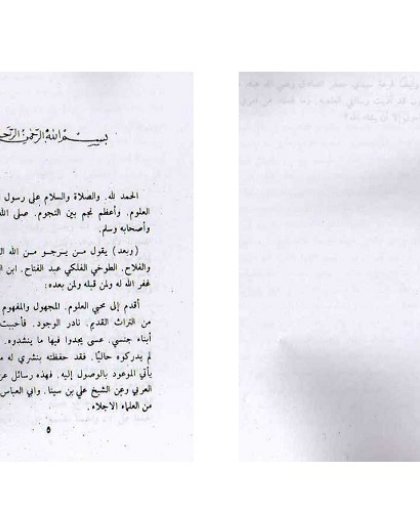 بسم الله الرحمن الرحي
الحمد لله. والصلاة والسلام على رسول
العلوم. وأعظم نجم بين النجوم. صلى الله
وأصحابه وسلم.
(وبعد) يقول من يرجو من الله ال
والفلاح. الطوخي الفلكي عبد الفتاح. ابن ا
غفر الله له ولمن قبله ولمن بعده:
أقدم إلى محبي العلوم. المجهول والمفهوم
من التراث القديم. نادر الوجود. فأحببت
أبناء جنسي. عسى يجدوا فيها ما ينشدوه.
لم يدركوه حاليًا. فقد حفظته بنشري له م
يأتي الموعود بالوصول إليه. فهذه رسائل عن
العربي وعن الشيخ علي بن سينا. وابي العباس
من العلماء الاجلاء.
٥